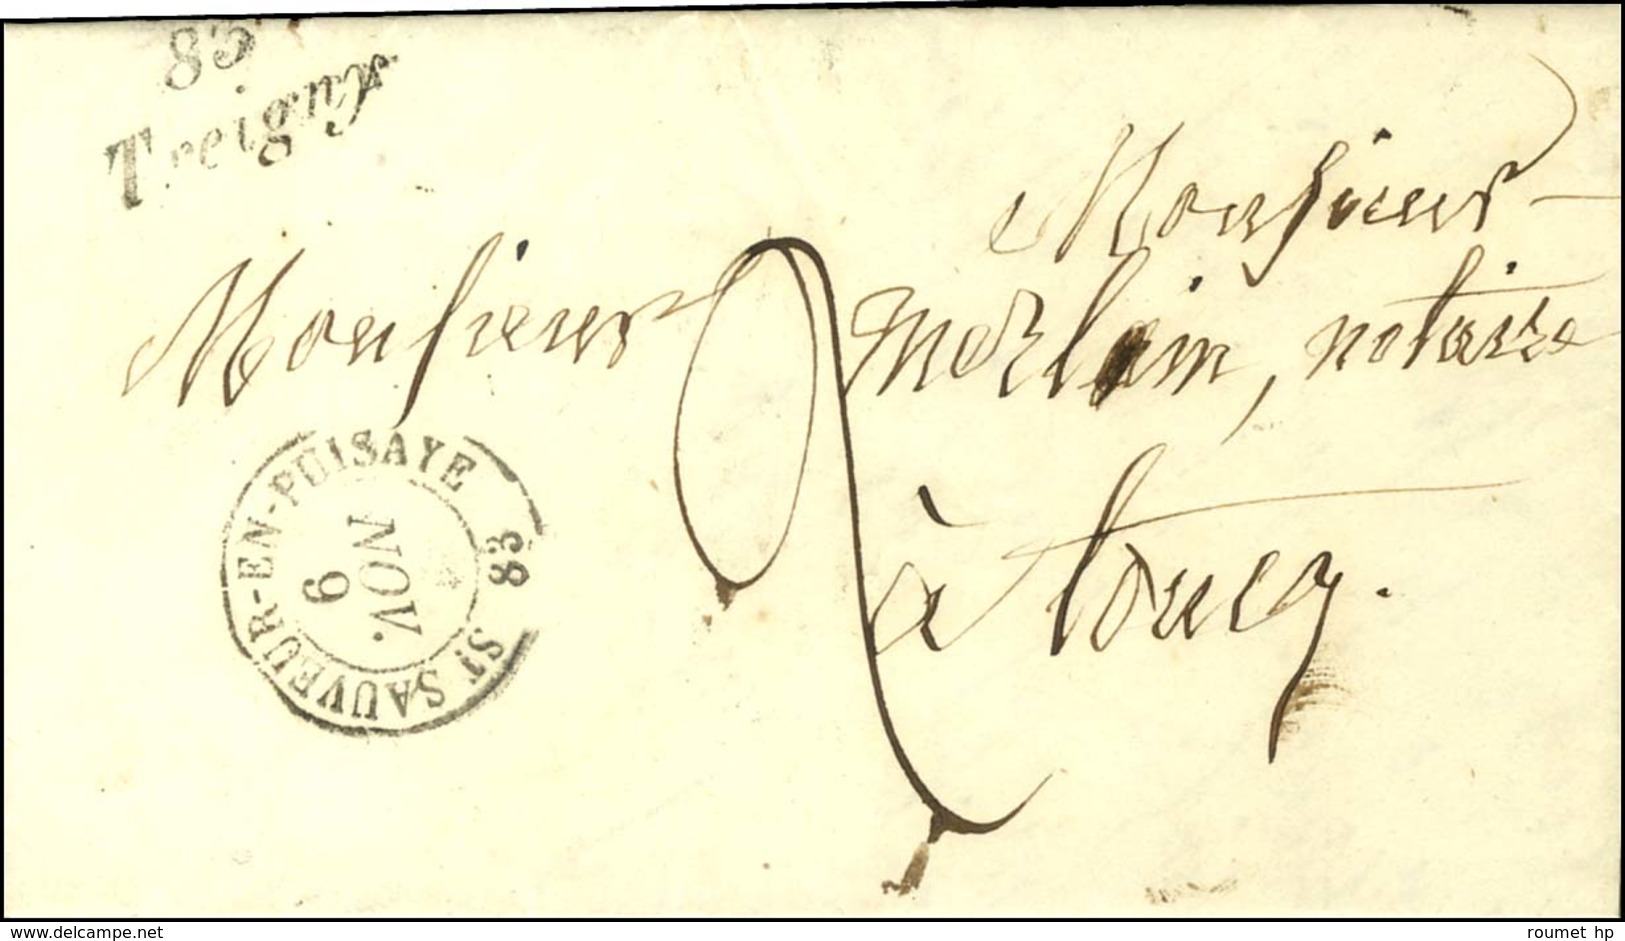 83
Treigny
Monsieur
Monsieur
notaire
à toucy.
ST SAUVEUR-EN-PUISAYE 83
6
NOV.
www.delcampe.net
roumet hp